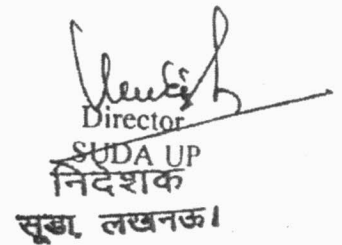 Director
SUDA UP
निदेशक
सूडा, लखनऊ।